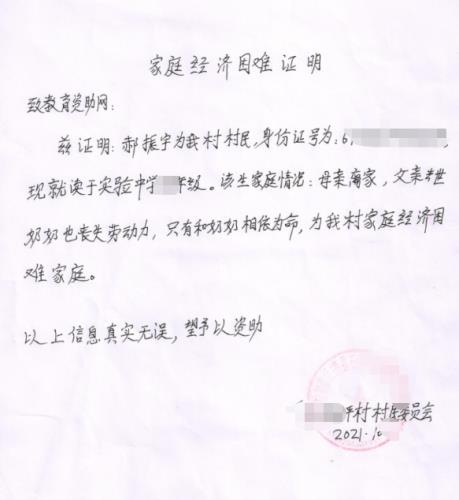 家庭经济困难证明
致教育资助网:
兹证明:郝振宇为我村村民,身份证号为:6,
现就读于实验中学 年级。该生家庭情况:母亲离家,父亲去世
奶奶也丧失劳动力,只有和奶奶相依为命,为我村家庭经济困
难家庭。
以上信息真实无误,望予以资助
村村民委员会
2021.10